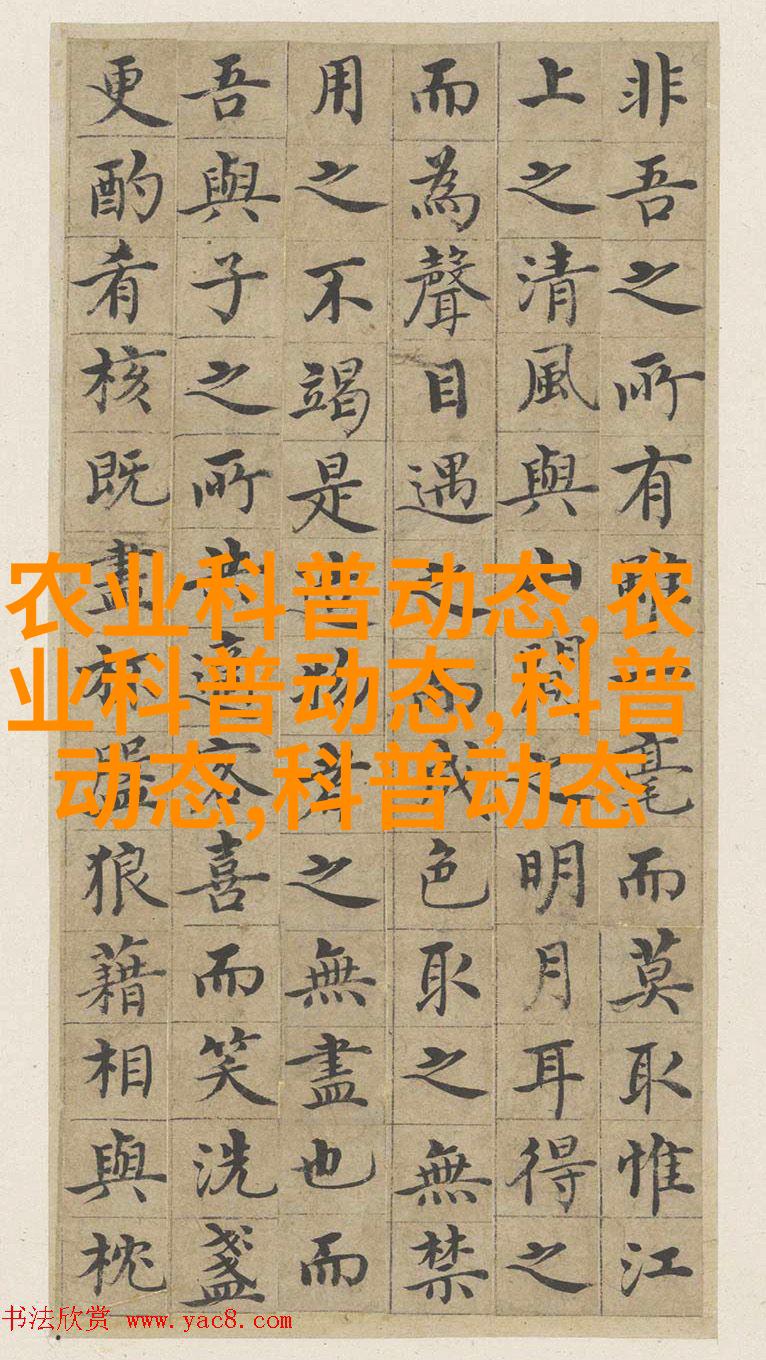 非吾之所有雖一毫而莫取惟江
上之清風與山間之明月耳得之
而為聲目遇之而成色取之無禁
用之不竭是造物者之無盡也而
吾與子之所共適客喜而笑洗盞
更酌肴核既盡杯盤狼藉相與枕
农业科普动态,农
业科普动态,科普
动态,科普动态
书法欣赏 www.yac8.com